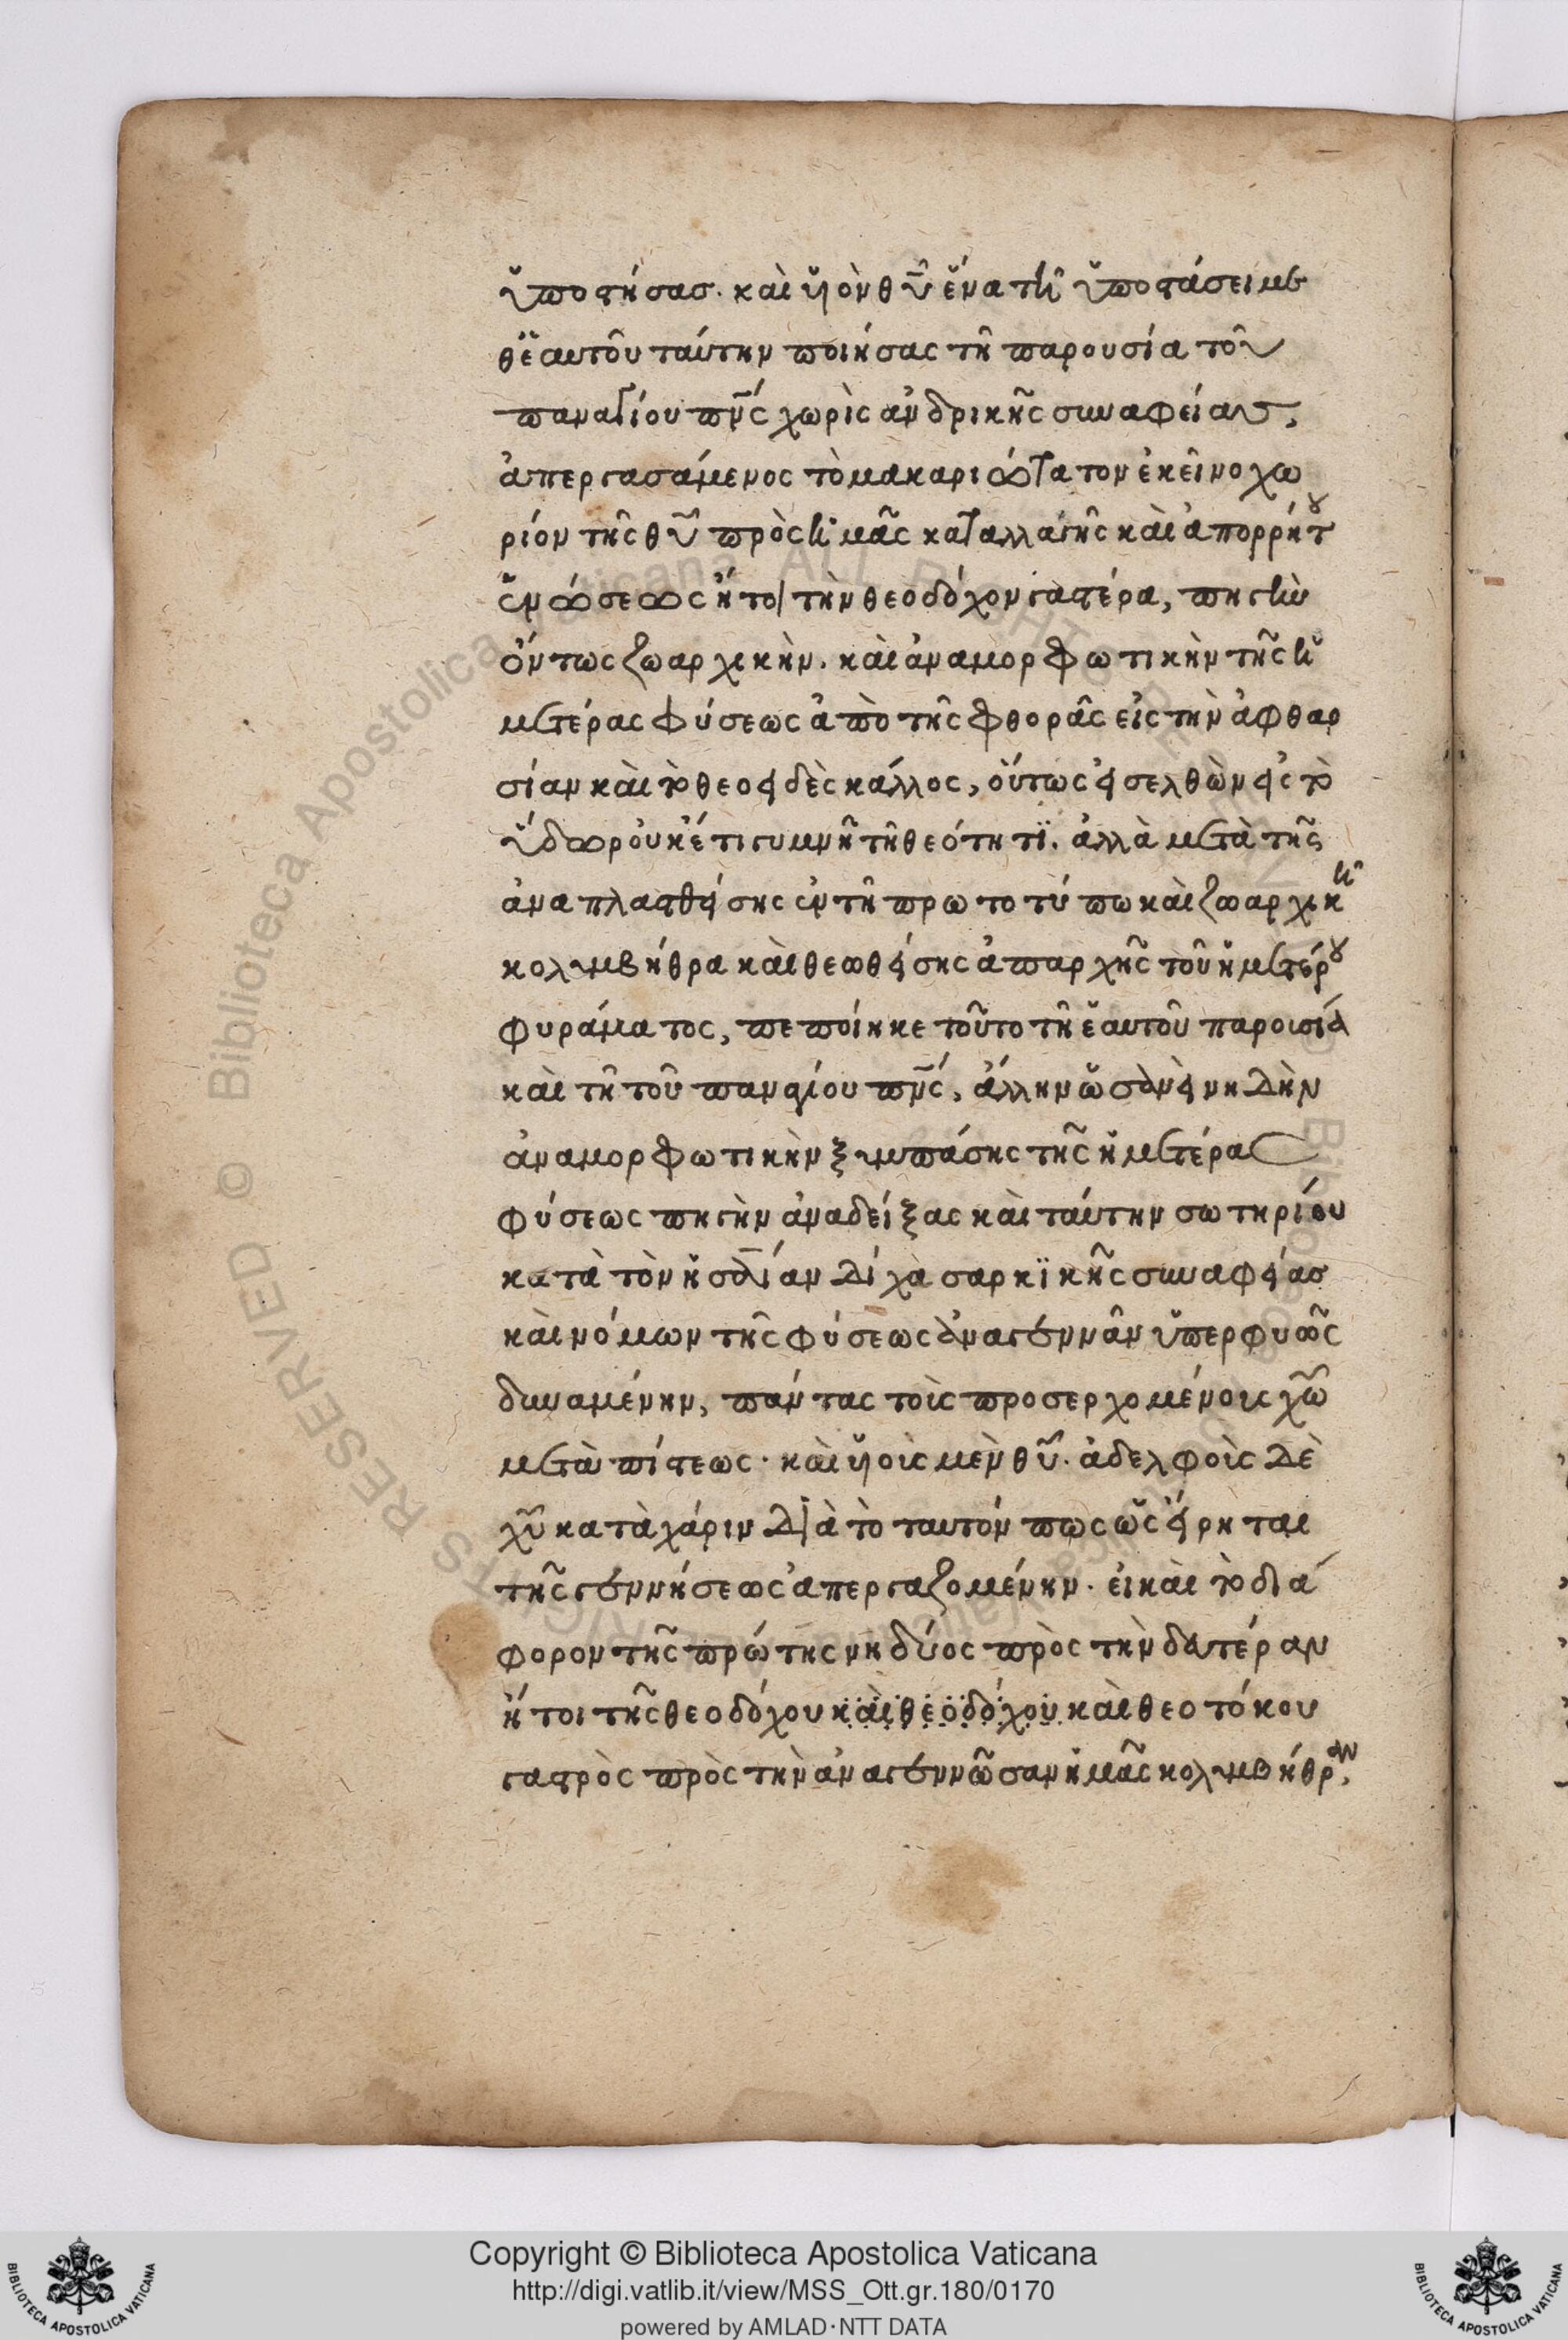 ὑποστήσας. καὶ υἱὸν θῦ ἕνα τῆ ὑποστάσει με
θ' ἑαυτοῦ ταύτην ποιήσας τῆ παρουσία τοῦ
παναγίου πνς χωρὶς ἀνδρικῆς συναφείας,
ἀπεργασάμενος τὸ μακαριώτατον ἐκεῖνο χω
ρίον τῆς θῦ πρὸς ἡμᾶς καταλλαγῆς καὶ ἀπορρήτου
ἑνώσεως ἤτοι τὴν θεοδόχον γαστέρα, πηγὴν
ὄντως ζωαρχικὴν. καὶ ἀναμορφωτικὴν τῆς ἡ
μετέρας φύσεως ἀπὸ τῆς φθορᾶς εἰς τὴν ἀφθαρ
σίαν καὶ τὸ θεοειδὲς κάλλος, οὕτως εἰσελθὼν εἰς τὸ
ὕδωρ οὐκέτι γυμνῆ τῆ θεότητι. ἀλλὰ μετὰ τῆς
ἀναπλασθείσης ἐν τῆ πρωτοτύπω καὶ ζωαρχικῆ
κολυμβήθρα καὶ θεωθείσης ἀπαρχῆς τοῦ ἡμετέρου
φυράματος, πεποίηκε τοῦτο τῆ ἑαυτοῦ παρουσία
καὶ τῆ τοῦ παναγίου πνς, ἄλλην ὡσανεὶ νηδὴν
ἀναμορφωτικὴν ξυμπάσης τῆς ἡμετέρας
φύσεως πηγὴν ἀναδείξας καὶ ταύτην σωτηρίου
κατὰ τὸν ἡσαΐαν δίχα σαρκικῆς συναφείας
καὶ νόμων τῆς φύσεως ἀναγεννᾶν ὑπερφυῶς
δυναμένην, πάντας τοὺς προσερχομένους χῶ
μετὰ πίστεως. καὶ υἱοὺς μὲν θῦ. ἀδελφοὺς δὲ
χῦ κατὰ χάριν διὰ τὸ ταυτόν πως ὡς εἴρηται
τῆς γεννήσεως ἀπεργαζομένην. εἰ καὶ τὸ διά
φορον τῆς πρώτης νηδύος πρὸς τὴν δευτέραν
ἤτοι τῆς θεοδόχου καὶ θεοδόχου καὶ θεοτόκου
γαστρὸς πρὸς τὴν ἀναγεννῶσαν ἡμᾶς κολυμβήθραν,
Copyright © Biblioteca Apostolica Vaticana
http://digi.vatlib.it/view/MSS_Ott.gr.180/0170
powered by AMLAD·NTT DATA